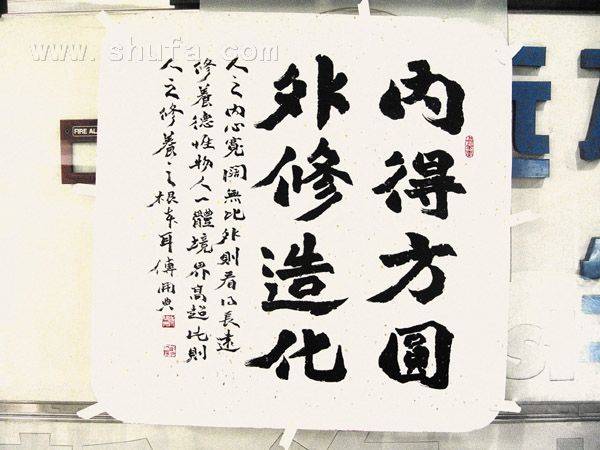 內得方圓
外修造化
人之内心寬闊無比外則看得長遠
修養德性物人一體境界高超此則
人之修養之根本耳 傅開典
www.shufa.com
FIRE AL